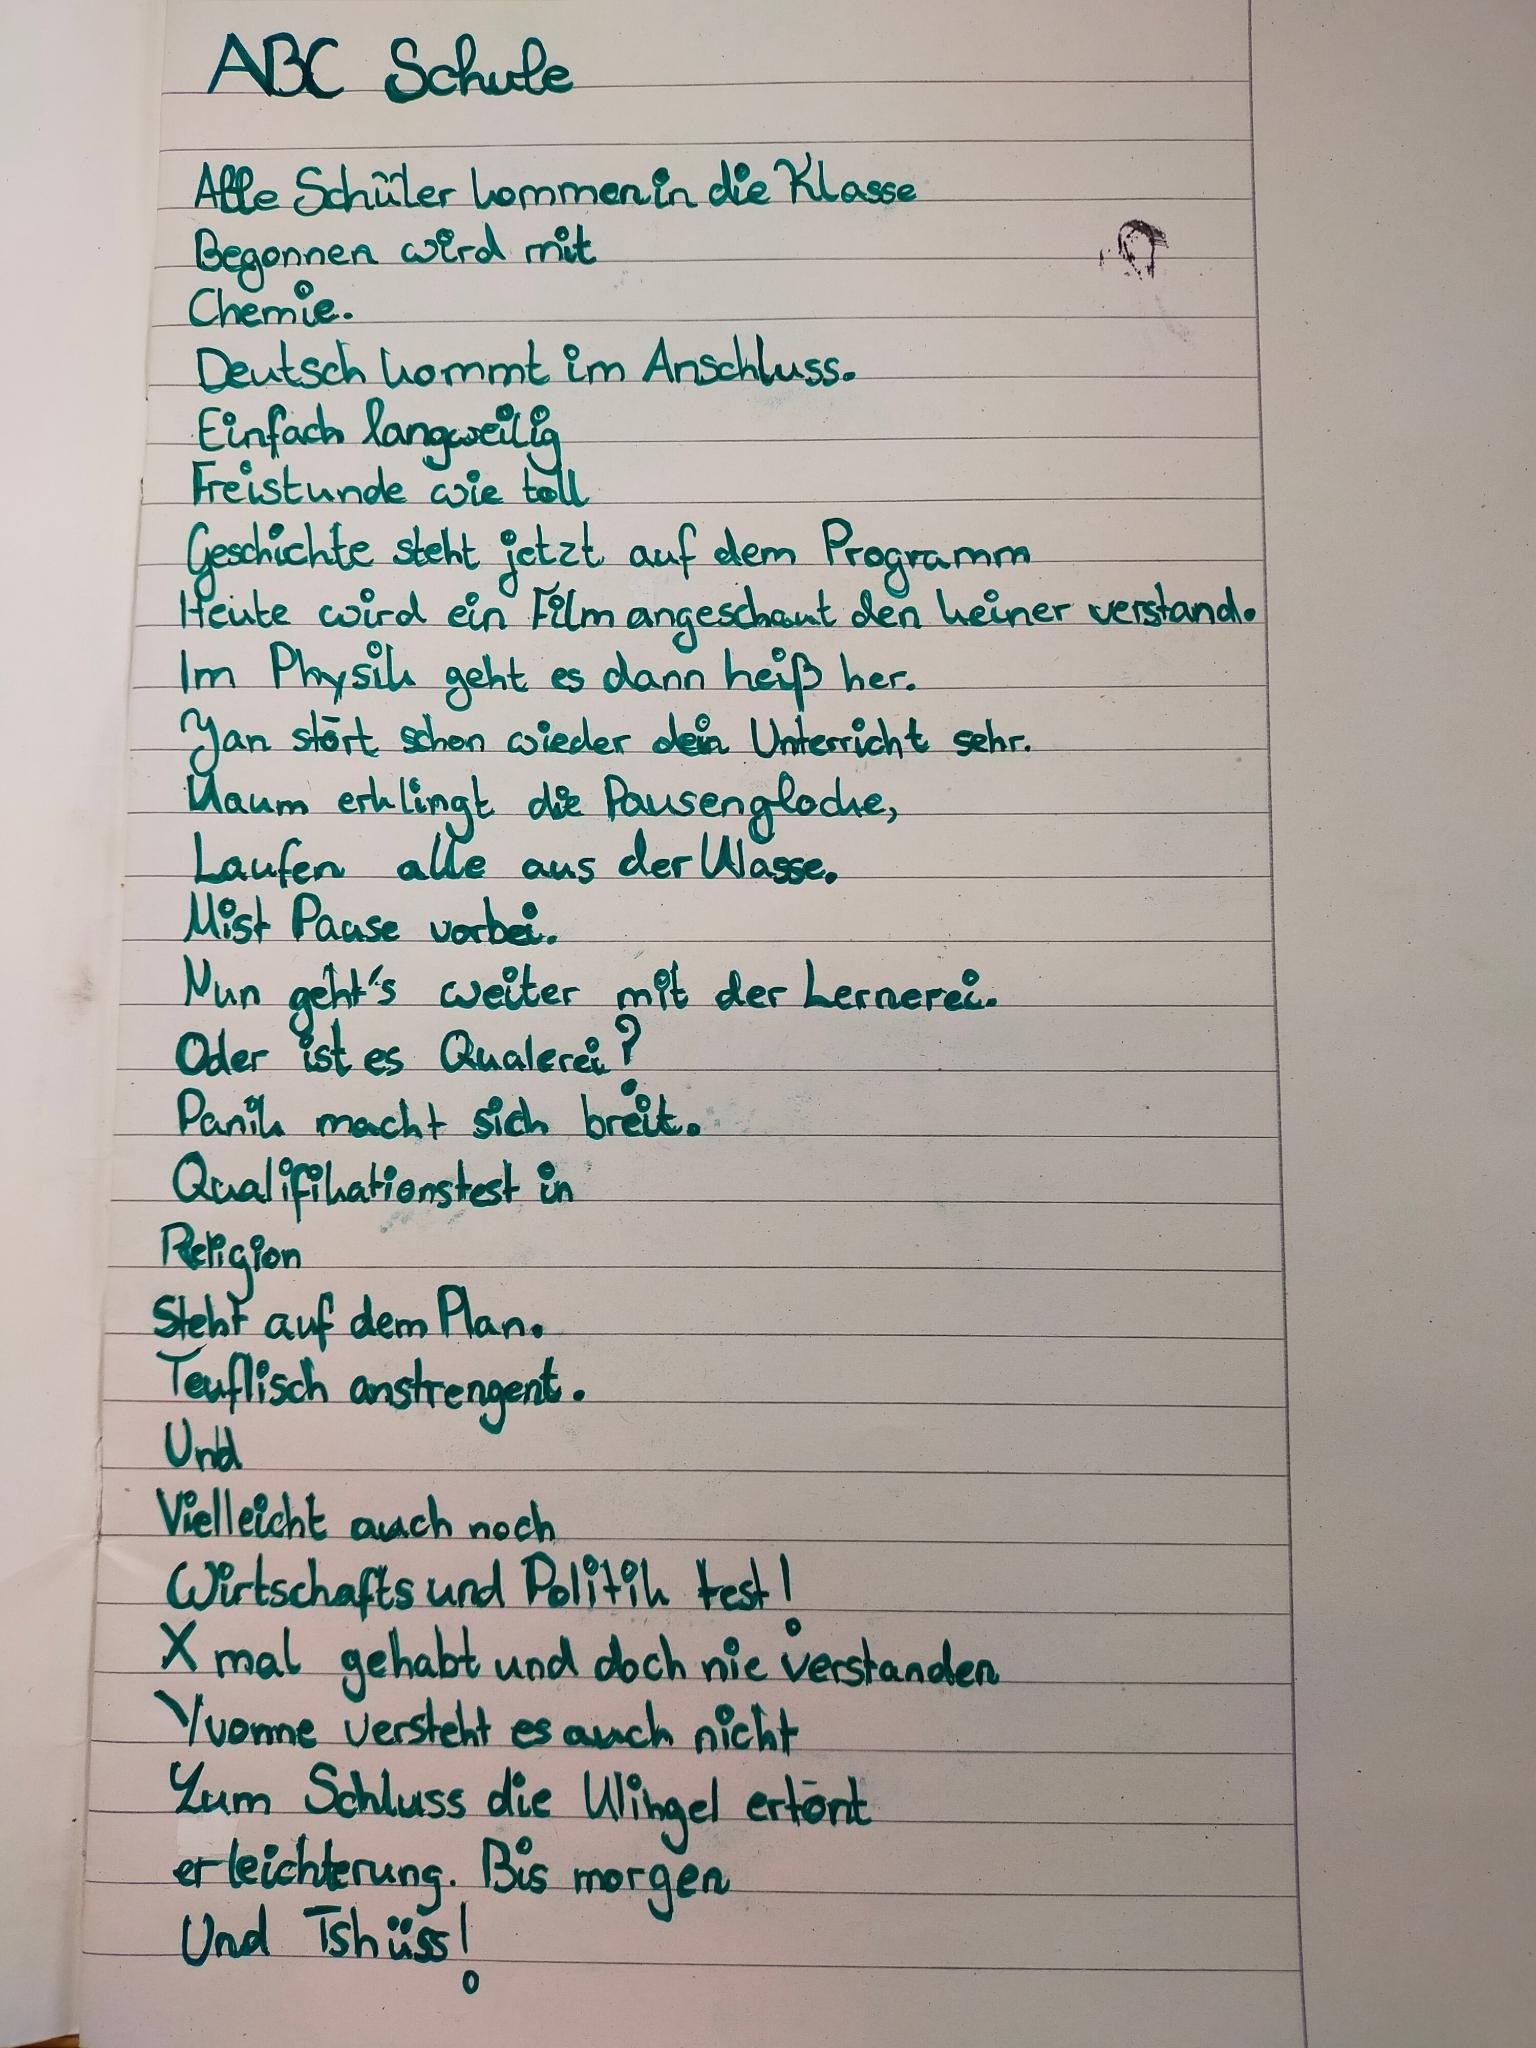 ABC Schule
Alle Schüler kommen in die Klasse
Begonnen wird mit
Chemie.
Deutsch kommt im Anschluss.
Einfach langweilig
Freistunde wie toll
Geschichte steht jetzt auf dem Programm
Heute wird ein Film angeschaut den keiner verstand.
Im Physik geht es dann heiß her.
Jan stört schon wieder dein Unterricht sehr.
Kaum erklingt die Pausenglocke,
Laufen alle aus der Klasse.
Mist Pause vorbei.
Nun geht's weiter mit der Lernerei.
Oder ist es Qualerei?
Panik macht sich breit.
Qualifikationstest in
Religion
Steht auf dem Plan.
Teuflisch anstrengent.
Und
Vielleicht auch noch
Wirtschafts und Politik test!
X mal gehabt und doch nie verstanden
Yvonne versteht es auch nicht
Zum Schluss die Klingel ertönt
erleichterung. Bis morgen
Und Tshüss!